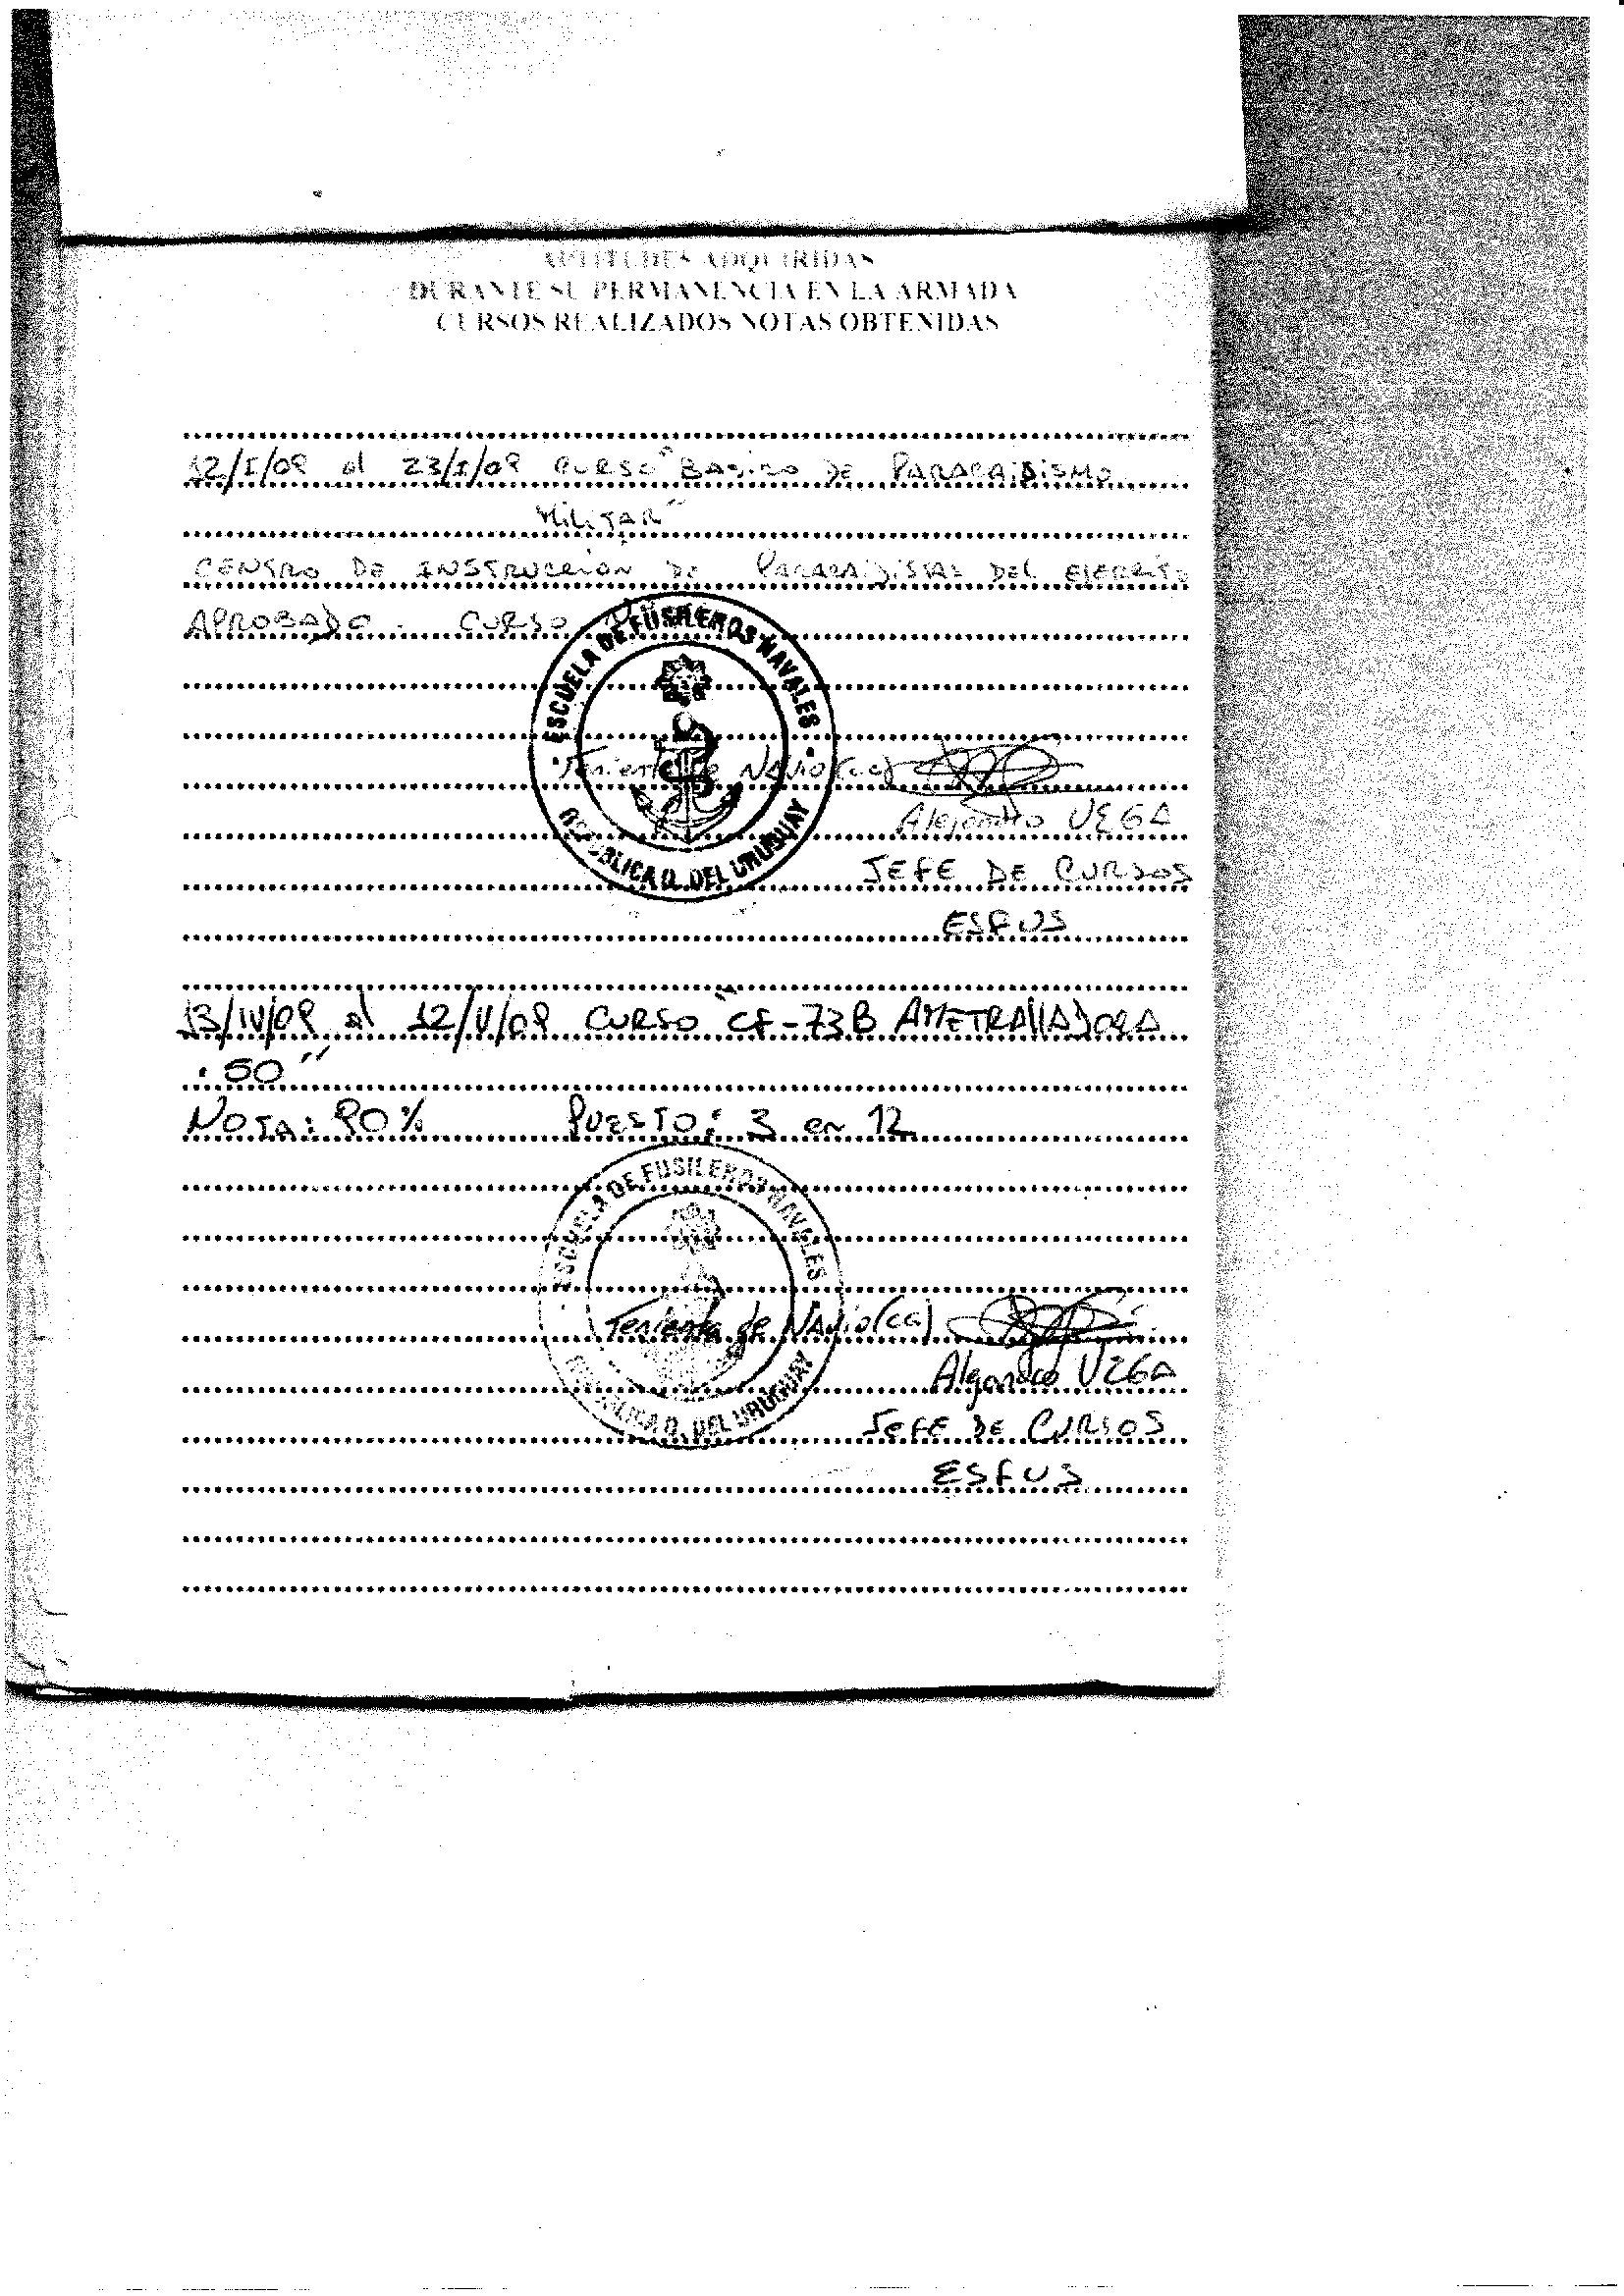 APTITUDES ADQUIRIDAS
DURANTE SU PERMANENCIA EN LA ARMADA
CURSOS REALIZADOS NOTAS OBTENIDAS
12/I/09 al 23/I/09 CURSO "BASICO DE PARACAIDISMO
MILITAR"
CENTRO DE INSTRUCCION DE PARACAIDISTAS DEL EJERCITO
APROBADO. CURSO
ESCUELA DE FUSILEROS NAVALES
Teniente de Navio (CG)
REPUBLICA O. DEL URUGUAY
Alejandro VEGA
JEFE DE CURSOS
ESFUS
13/IV/09 al 12/V/09 CURSO "CF-73B AMETRALLADORA
.50"
NOTA: 90% PUESTO: 3 en 12
ESCUELA DE FUSILEROS NAVALES
Teniente de Navio (CG)
REPUBLICA O. DEL URUGUAY
Alejandro VEGA
JEFE DE CURSOS
ESFUS